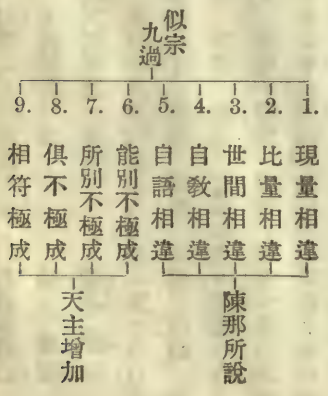 似宗
九過
1. 現量相違
2. 比量相違
3. 世間相違
4. 自教相違
5. 自語相違
6. 能別不極成
7. 所別不極成
8. 俱不極成
9. 相符極成
陳那所說
天主增加